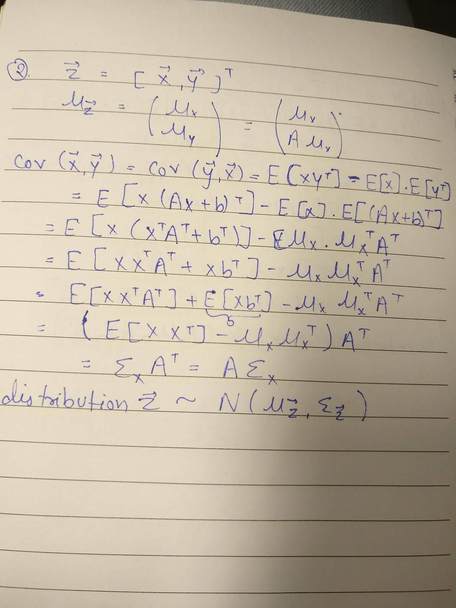 ② z⃗ = [x⃗, y⃗]ᵀ
μ_z⃗ = (μₓ / μ_y) = (μₓ / Aμₓ)
cov(x⃗, y⃗) = cov(y⃗, x⃗) = E[xyᵀ] - E[x].E[yᵀ]
= E[x(Ax+b)ᵀ] - E[x].E[(Ax+b)ᵀ]
= E[x(xᵀAᵀ+bᵀ)] - μₓ.μₓᵀAᵀ
= E[xxᵀAᵀ + xbᵀ] - μₓμₓᵀAᵀ
= E[xxᵀAᵀ] + E[xbᵀ] - μₓμₓᵀAᵀ
= (E[xxᵀ] - μₓμₓᵀ)Aᵀ
= ΣₓAᵀ = AΣₓ
distribution z⃗ ~ N(μ_z⃗, Σ_z⃗)